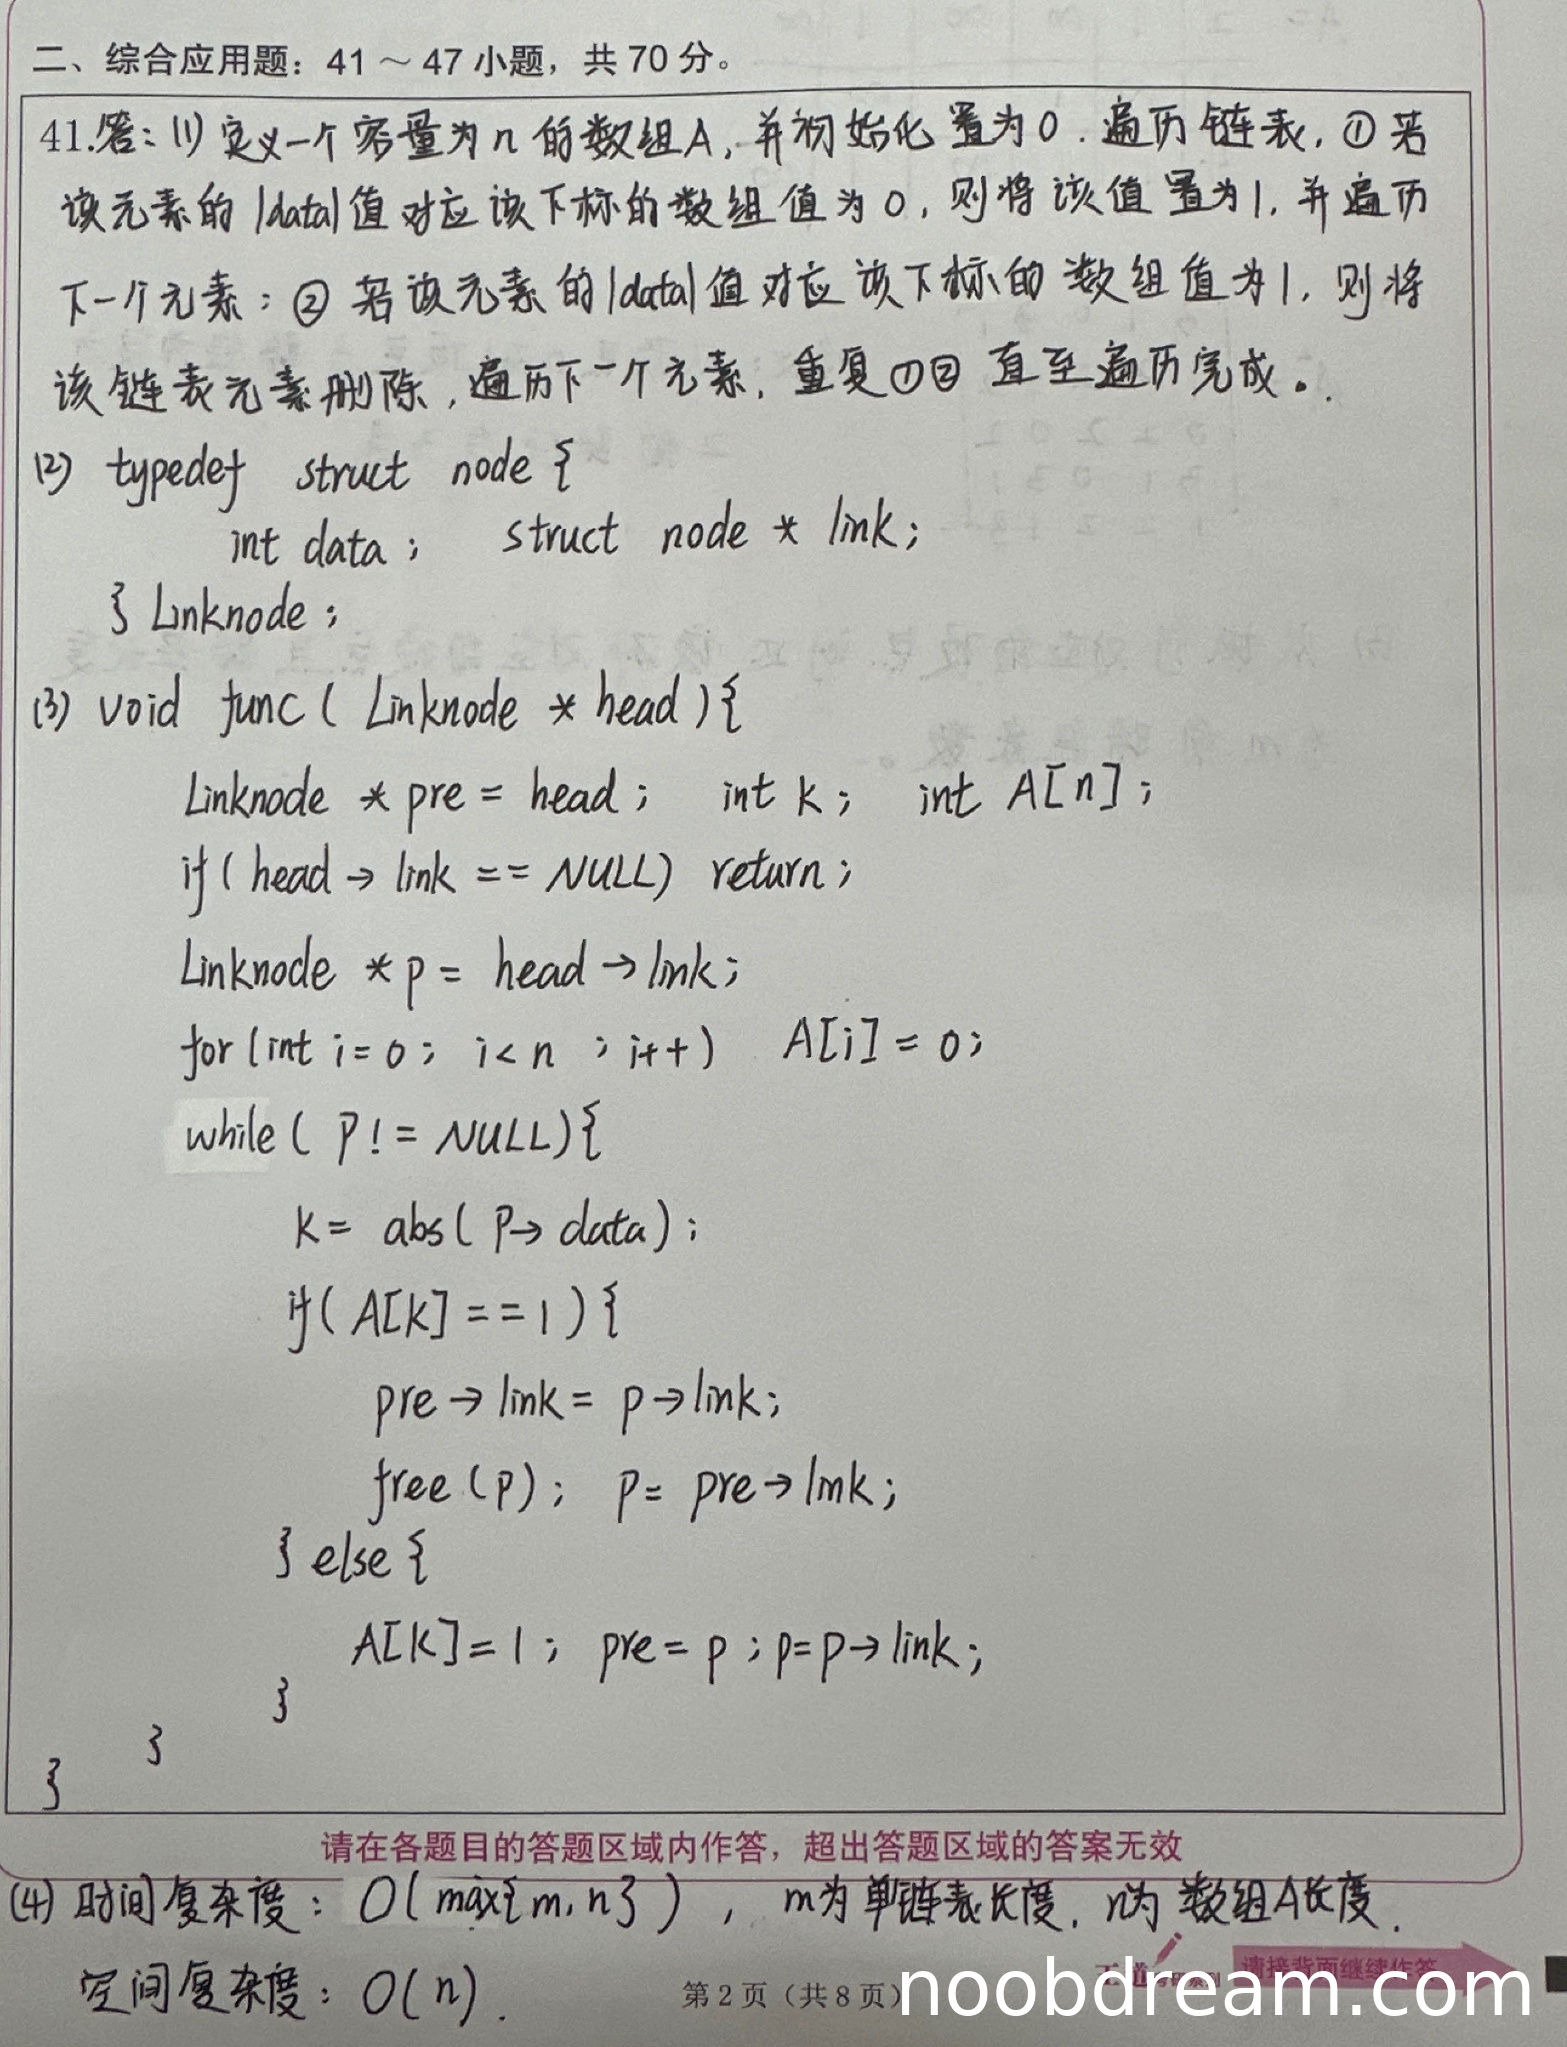 二、综合应用题：41 ～ 47 小题，共 70 分。
41.答：(1) 定义一个容量为n的数组A，并初始化置为0．遍历链表，① 若
该元素的|data|值对应该下标的数组值为0，则将该值置为1，并遍历
下一个元素；② 若该元素的|data|值对应该下标的数组值为1，则将
该链表元素删除，遍历下一个元素，重复①② 直至遍历完成。
(2) typedef struct node {
int data; struct node * link;
} Linknode;
(3) void func ( Linknode * head ) {
Linknode * pre = head; int k; int A[n];
if ( head → link == NULL) return;
Linknode * p = head → link;
for (int i=0; i<n ; i++) A[i] = 0;
while ( p != NULL) {
k = abs( p→ data);
if ( A[k] == 1 ) {
pre → link = p → link;
free (p); p = pre → link;
} else {
A[k] = 1; pre = p ; p=p→ link;
}
}
}
请在各题目的答题区域内作答，超出答题区域的答案无效
(4) 时间复杂度：O( max{m, n} ) , m为单链表长度，n为数组A长度．
空间复杂度：O( n)．
请接背面继续作答
第 2 页（共 8 页）
noobdream.com